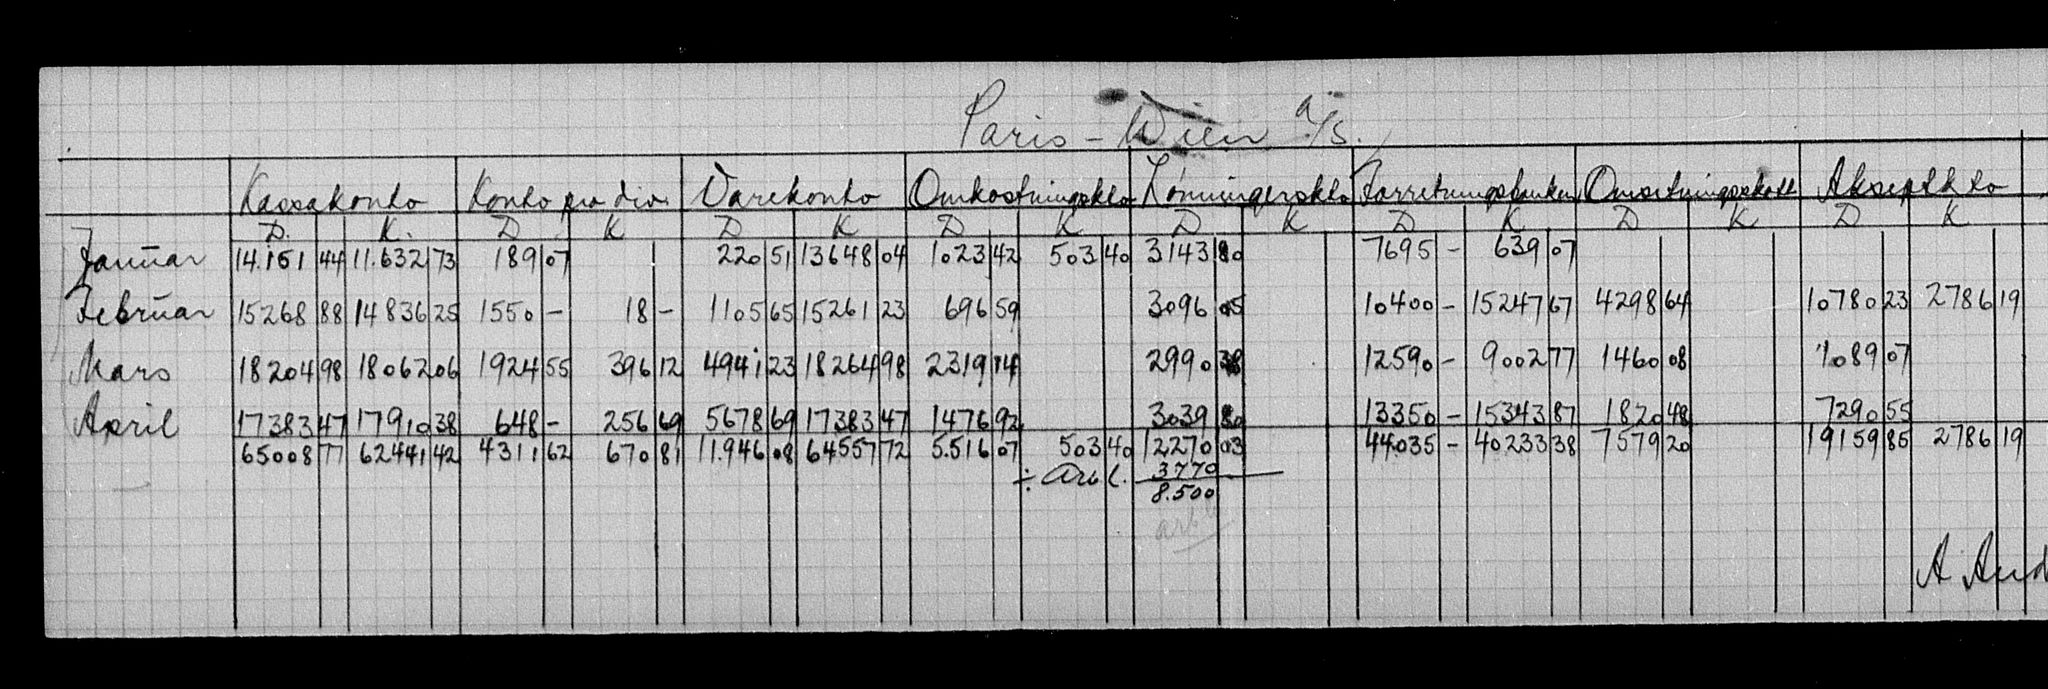 Paris - Wien A/S.
Kassakonto Konto pro div. Varekonto Omkostningskto Lønningerskto Forretningsbanken Omsetningsskatt Akseptkto
D. K. D K D K D K D K D K D K D K
Januar 14.151 44 11.632 73 189 07 220 51 13648 04 1023 42 503 40 3143 80 7695 - 639 07
Februar 15268 88 14836 25 1550 - 18 - 1105 65 15261 23 696 59 3096 05 10400 - 15247 67 4298 64 10780 23 2786 19
Mars 18204 98 18062 06 1924 55 396 12 4941 23 18264 98 2319 14 2990 38 12590 - 9002 77 1460 08 1089 07
April 17383 47 17910 38 648 - 256 69 5678 69 17383 47 1476 92 3039 80 13350 - 15343 87 1820 48 7290 55
65008 77 62441 42 4311 62 670 81 11.946 08 64557 72 5.516 07 503 40 12270 03 44.035 - 40233 38 7579 20 19159 85 2786 19
÷ Arb l. 3770
8.500
A. And